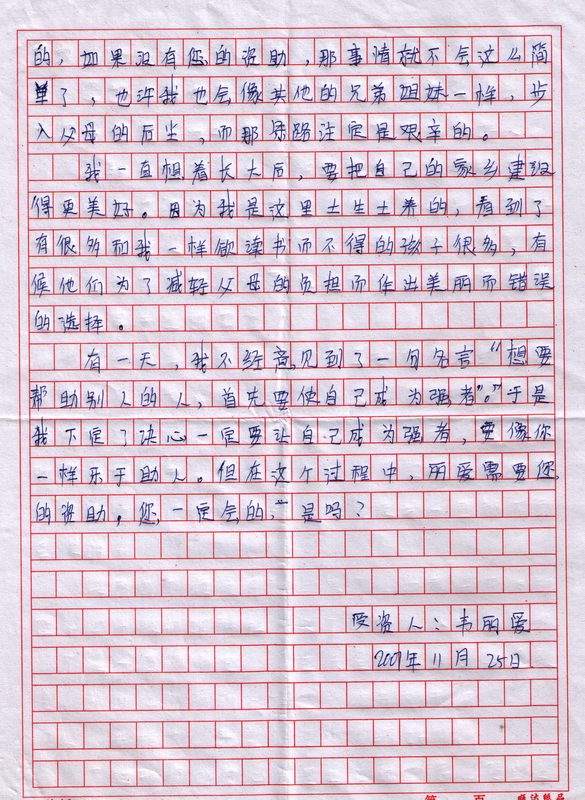 的，如果没有您的资助，那事情就不会这么简
单了，也许我也会像其他的兄弟姐妹一样，步
入父母的后尘，而那条路注定是艰辛的。
我一直想着长大后，要把自己的家乡建设
得更美好。因为我是这里土生土养的，看到了
有很多和我一样欲读书而不得的孩子很多，有
候他们为了减轻父母的负担而作出美丽而错误
的选择。
有一天，我不经意见到了一句名言“想要
帮助别人的人，首先要使自己成为强者”。于是
我下定了决心一定要让自己成为强者，要像你
一样乐于助人。但在这个过程中，丽爱需要您
的资助，您，一定会的，是吗？
受资人：韦丽爱
2007年11月25日
第 页